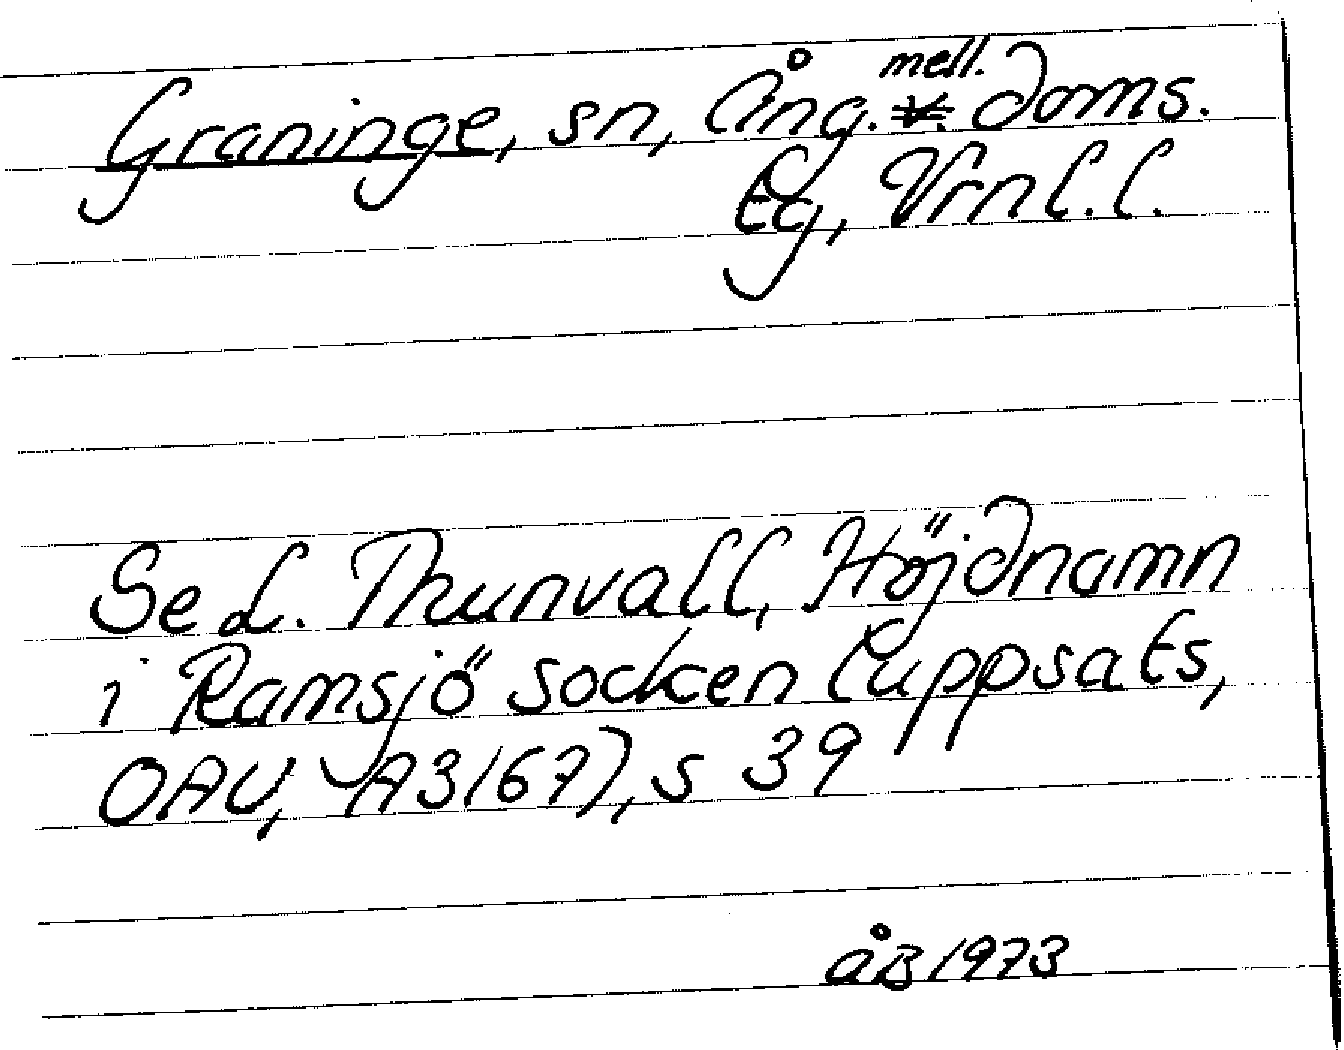 Graninge, sn, Ång. mell. doms.
tg, Vrnl. l.
Se L. Thunvall, Höjdnamn
i Ramsjö socken (uppsats,
OAU, A3167), s 39
åB 1973